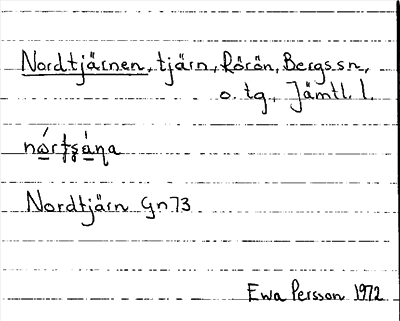 Nordtjärnen, tjärn, Rörön, Bergs sn,
o. tg., Jämtl. l.
Nordtjärn Gn 73
Ewa Persson 1972